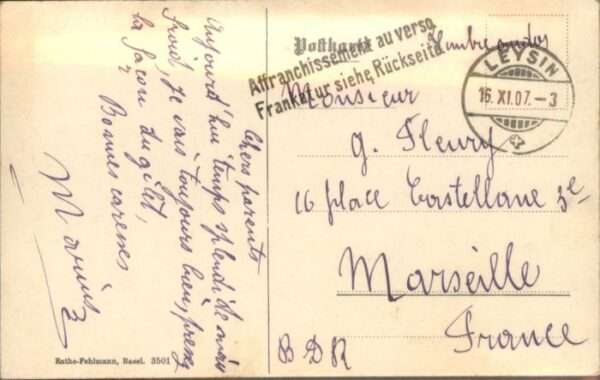 Postkarte
Timbre au dos
Affranchissement au verso
Frankatur siehe Rückseite
LEYSIN
16. XI. 07. - 3
Monsieur
G. Fleury
16 place Castellane 3e
Marseille
France
BDR
Chers parents
Aujourd'hui temps splendide mais
froid, je vais toujours bien, prenez
la façon du gilet,
Bonnes caresses
Marius
Rathe-Fehlmann, Basel. 3501